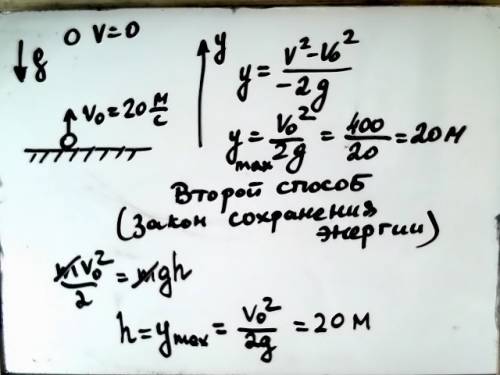 v=0
g
v₀=20 м/с
y
y = (v²-v₀²)/(-2g)
y max = v₀²/2g = 400/20 = 20 м
Второй способ
(Закон сохранения
энергии)
mv₀²/2 = mgh
h = y max = v₀²/2g = 20 м